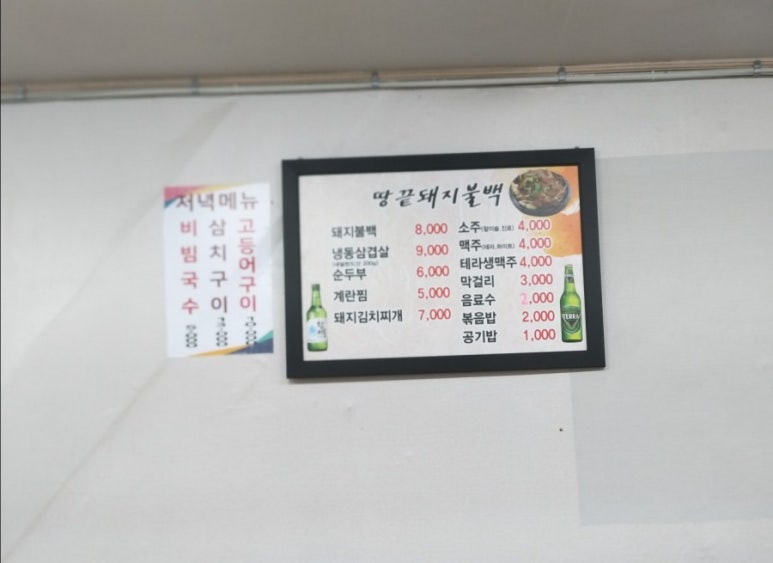 저녁메뉴
비빔국수
삼치구이
고등어구이
땅끝돼지불백
돼지불백 8,000
냉동삼겹살 9,000
순두부 6,000
계란찜 5,000
돼지김치찌개 7,000
소주(참이슬,진로) 4,000
맥주(테라,하이트) 4,000
테라생맥주 4,000
막걸리 3,000
음료수 2,000
볶음밥 2,000
공기밥 1,000
TERRA